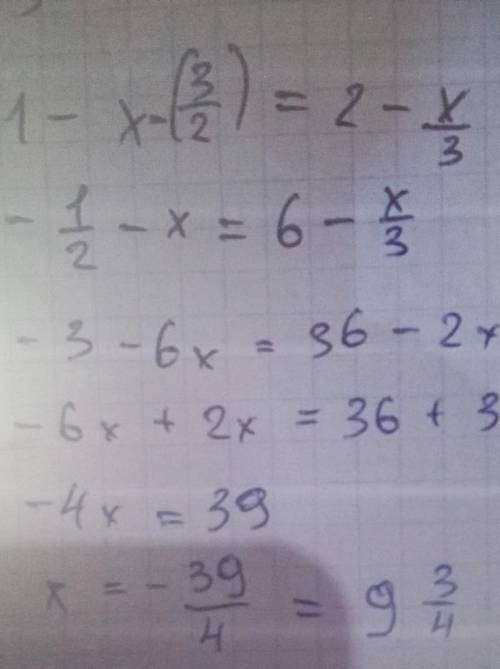 1 - x - (3/2) = 2 - x/3
- 1/2 - x = 6 - x/3
- 3 - 6x = 36 - 2x
- 6x + 2x = 36 + 3
- 4x = 39
x = - 39/4 = 9 3/4